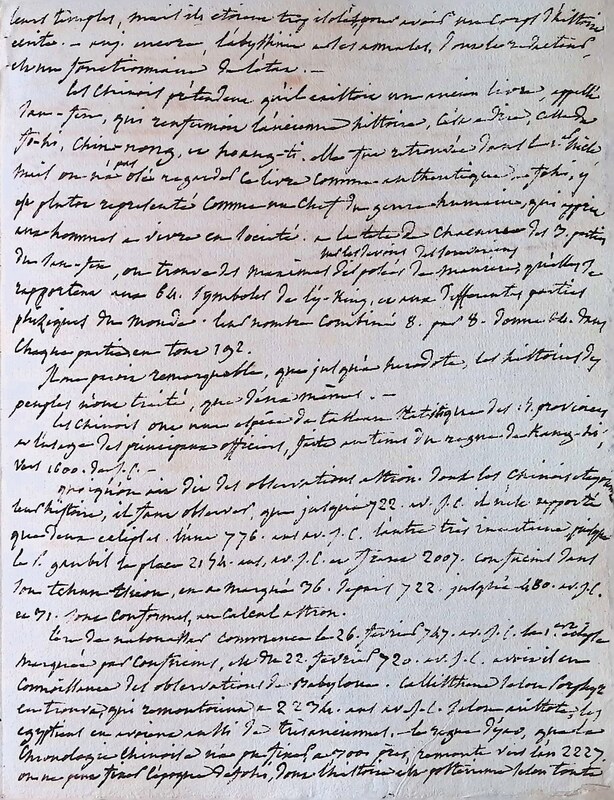 leurs temples, mais ils étoient trop isolés pour avoir un corps d'histoire
écrite. — auj. encore, l'abyssinie a ses annales, dont le rédacteur,
est un fonctionnaire de l'état. —
Les Chinois prétendent qu'il existoit un ancien livre, appellé
San-fen, qui renfermoit l'ancienne histoire, c'est à dire, celle de
fo-hi, Chin-nong, et hoang-ti. elle fut retrouvée dans le siècle
mais on n'a pas osé regarder ce livre comme authentique. fohi, y
est plutot representé comme un chef du genre humain, qui apprit
aux hommes a vivre en société. a la tete de chacune des 3. parties
sur les devoirs des souverains
du San-fen, on trouve des maximes de
rapportent aux 64. symboles de l'y-King, et aux differentes parties
physiques du monde. leur nombre combiné 8. par 8. donne 64. dans
chaque partie, en tout 192.
Il me paroit remarquable, que jusqu'a herodote, les histoires des
peuples n'ont traité, que d'eux mêmes. —
les Chinois ont une espèce de tableau statistique des provinces,
a l'usage des principaux officiers, faite au tems du regne de Kang-hi,
vers 1600. de J.C. —
quoiqu'on ait dit des observations astron. dont les Chinois
leur histoire, il faut observer, que jusqu'a 722. av. J.C. il n'est rapporté
que deux eclipses. l'une 776. ans av. J.C. l'autre très incertaine puisque
le P. gaubil la place 2154. ans, av. J.C. et freret 2007. confucius dans
son tchun tsieou, en a marqué 36. depuis 722. jusqu'à 480. av. J.C.
et 31. sont conformes, au calcul astron.
L'ere de nabonassar commence le 26. fevrier 747. av. J.C. la 1.ere eclipse
marquée par Confucius, est du 22. fevrier 720. av. J.C. avoit il eu
connoissance des observations de Babylone. Callisthene selon Porphyre
en trouva, qui remontoient a 2234. ans av. J.C. selon aristote, les
egyptiens en avoient aussi de très anciennes. — le regne d'yao, que la
chronologie chinoise n'a pu fixer a 700 ans près, remonte vers l'an 2227
on ne peut fixer l'époque de fohi, dont l'histoire est postérieure selon toute